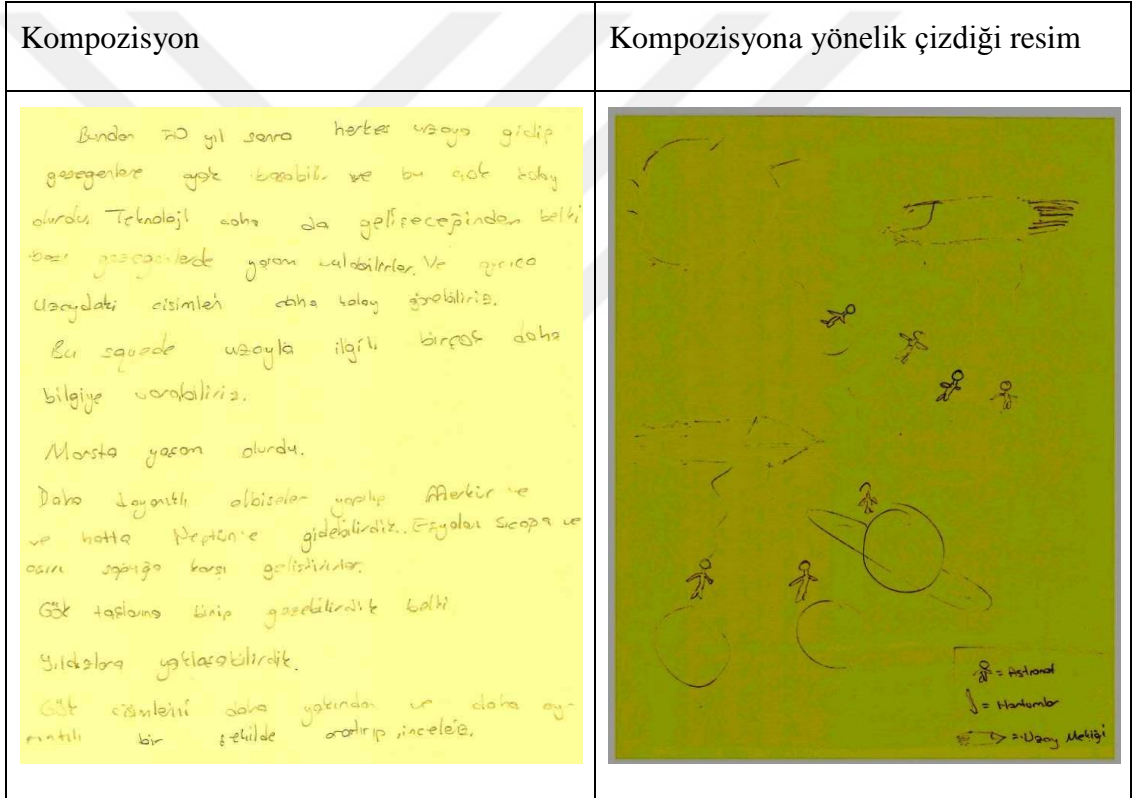 Kompozisyon
Kompozisyona yönelik çizdiği resim
Bundan 20 yıl sonra herkes uzaya gidip
gezegenlere ayak basabilir ve bu çok kolay
olurdu. Teknoloji daha da gelişeceğinden belki
bazı gezegenlerde yaşam bulabilirler. Ve ayrıca
Uzaydaki cisimleri daha kolay görebiliriz.
Bu sayede uzayla ilgili birçok daha
bilgiye varabiliriz.
Marsta yaşam olurdu.
Daha dayanıklı elbiseler yapılıp Merkür'e
ve hatta Neptün'e gidebilirdik. Eşyaları sıcağa ve
aşırı soğuğa karşı geliştirirler.
Gök taşlarına binip gezebilirdik belki
Yıldızlara yaklaşabilirdik.
Gök cisimlerini daha yakından ve daha ay-
rıntılı bir şekilde araştırıp inceleriz.
= Astronot
= Hortumlar
= Uzay Mekiği